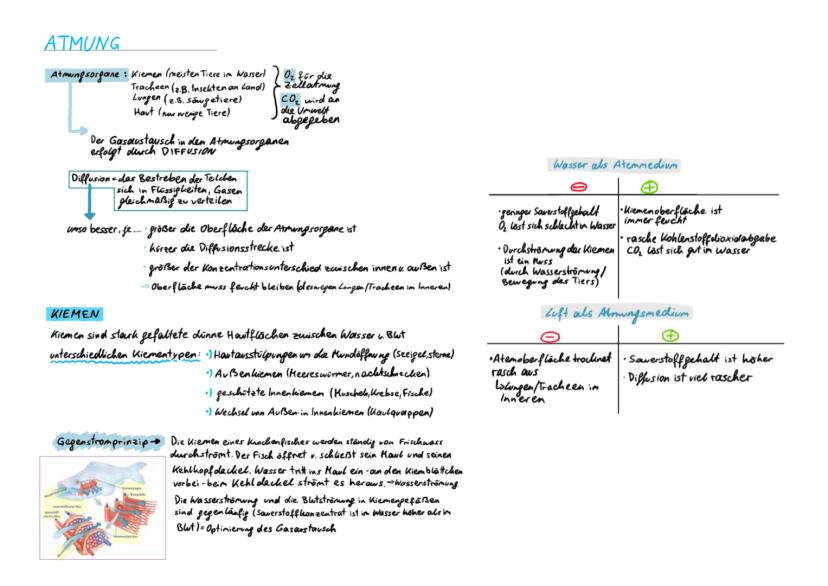 ATMUNG
Atmungsorgane: Kiemen (meisten Tiere im Wasser)
Tracheen (z.B. Insekten an Land)
Lungen (z.B. Säugetiere)
Haut (nur wenige Tiere)
O₂ für die
Zellatmung
CO₂ wird an
die Umwelt
abgegeben
Der Gasaustausch in den Atmungsorganen
erfolgt durch DIFFUSION
Diffusion = das Bestreben der Teilchen
sich in Flüssigkeiten, Gasen
gleichmäßig zu verteilen
umso besser, je... · größer die Oberfläche der Atmungsorgane ist
· kürzer die Diffusionsstrecke ist
· größer der Konzentrationsunterschied zwischen innen u. außen ist
→ Oberfläche muss feucht bleiben (deswegen Lungen/Tracheen im Inneren)
KIEMEN
Kiemen sind stark gefaltete dünne Hautflächen zwischen Wasser u. Blut
unterschiedlichen Kiementypen: •) Hautausstülpungen um die Mundöffnung (Seeigel, sterne)
•) Außenkiemen (Meereswürmer, nachtschnecken)
•) geschützte Innenkiemen (Muscheln, Krebse, Fische)
•) Wechsel von Außen in Innenkiemen (Kaulquappen)
Gegenstromprinzip → Die Kiemen eines Knochenfisches werden ständig von Frischwass
durchströmt. Der Fisch öffnet u. schließt sein Maul und seinen
Kehlkopfdeckel. Wasser tritt ins Maul ein - an den Kiemblättchen
vorbei - beim Kehldeckel strömt es heraus. → Wasserströmung
Die Wasserströmung und die Blutströmung in Kiemengefäßen
sind gegenläufig (Sauerstoffkonzentrat ist im Wasser höher als im
Blut) = Optimierung des Gasaustausch
Wasser als Atemmedium
⊖ ⊕
· geringer Sauerstoffgehalt
O₂ löst sich schlecht in Wasser
· Durchströmung der Kiemen
ist ein Muss
(durch Wasserströmung/
Bewegung des Tiers)
· Kiemenoberfläche ist
immer feucht
· rasche Kohlenstoffdioxidabgabe
CO₂ löst sich gut in Wasser
Luft als Atmungsmedium
⊖ ⊕
· Atemoberfläche trocknet
rasch aus
↳ Lungen/Tracheen im
Inneren
· Sauerstoffgehalt ist höher
· Diffusion ist viel rascher